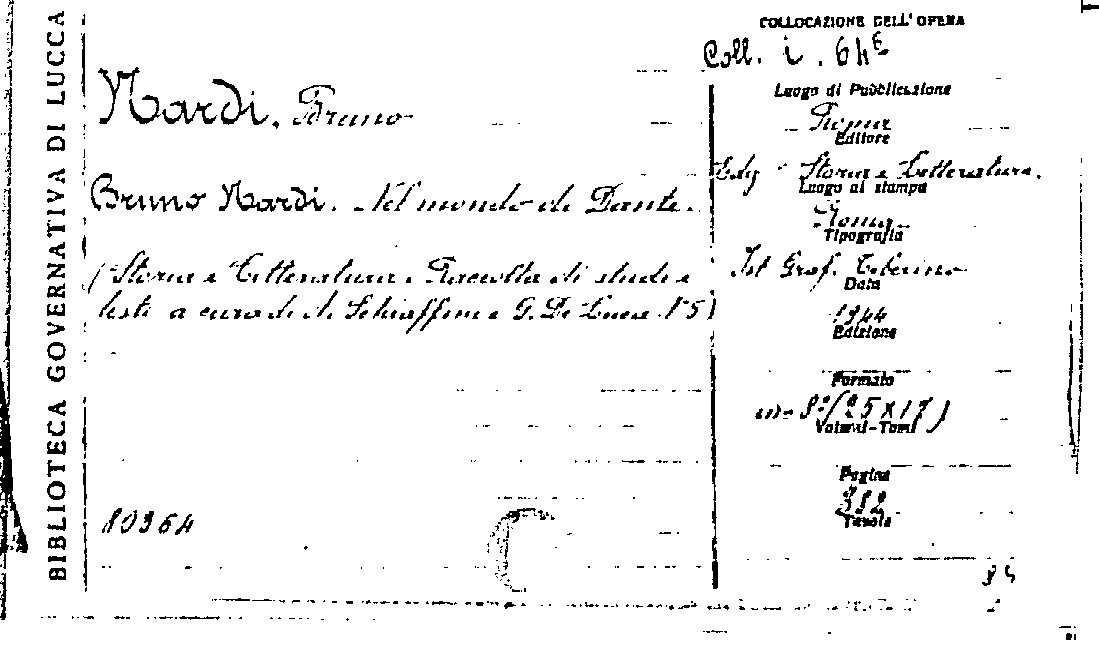 BIBLIOTECA GOVERNATIVA DI LUCCA
COLLOCAZIONE DELL'OPERA
Coll. i. 64
Nardi, Bruno
Luogo di Pubblicazione
Roma
Editore
Bruno Nardi. Nel mondo di Dante.
Ediz. Storia e Letteratura.
Luogo di stampa
Roma
Tipografia
(Storia e Letteratura. Raccolta di studi e
testi a cura di A. Schiaffini e G. De Luca. N° 5)
Ist. Graf. Tiberino
Data
1944
Edizione
Formato
in-8° (25x17)
Volumi-Tomi
Pagine
392
Tavole
80364